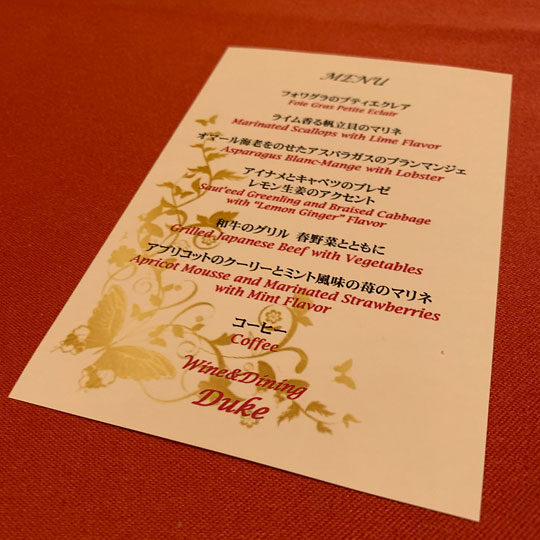 MENU
フォワグラのプティエクレア
Foie Gras Petite Eclair
ライム香る帆立貝のマリネ
Marinated Scallops with Lime Flavor
オマール海老をのせたアスパラガスのブランマンジェ
Asparagus Blanc-Mange with Lobster
アイナメとキャベツのブレゼ
レモン生姜のアクセント
Saut'eed Greenling and Braised Cabbage
with "Lemon Ginger" Flavor
和牛のグリル 春野菜とともに
Grilled Japanese Beef with Vegetables
アプリコットのクーリーとミント風味の苺のマリネ
Apricot Mousse and Marinated Strawberries
with Mint Flavor
コーヒー
Coffee
Wine&Dining
Duke